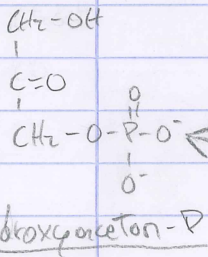 CH2-OH
C=O
O
CH2-O-P-O-
O-
droxyaceton-P